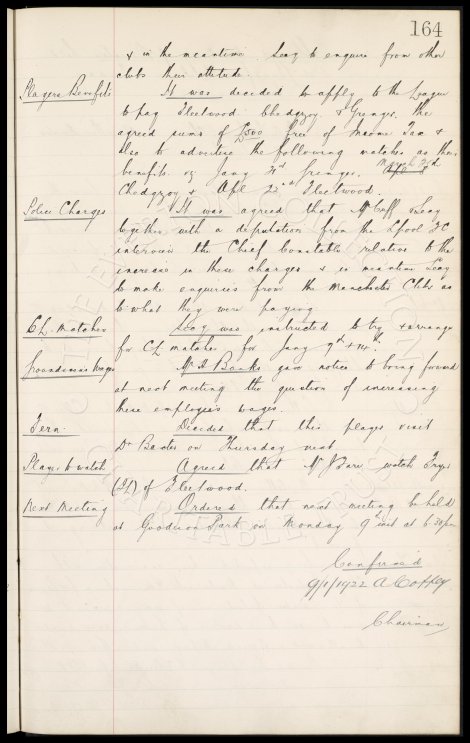 164
& in the meantime Secy to enquire from other
clubs their attitude.
Players Benefits It was decided to apply to the League
to pay Fleetwood. Chedgzoy & Grenyer. the
agreed sums of £500 free of Income Tax &
also to advertise the following matches as their
benefits. vz Jany 21st Grenyer. March 3rd
Chedgzoy & Apl 22nd Fleetwood.
Police Charges It was agreed that Mr Cuff & Secy
together with a deputation from the Lpool FC
interview the Chief Constable relative to the
increase in these charges & in meantime Secy
to make enquiries from the Manchester Clubs as
to what they were paying
CL. Matches Secy was instructed to try & arrange
for CL matches for Jany 9th &
Groundsman's Wages Mr H Banks gave notice to bring forward
at next meeting the question of increasing
these employees wages.
Fern. Decided that this player visit
Dr Baxter on Thursday next
Player to watch Agreed that Mr J Fare watch
of Fleetwood.
Next Meeting Ordered that next meeting be held
at Goodison Park on Monday 9th inst at 6.30pm
Confirmed
9/1/1922 A Coffey
Chairman